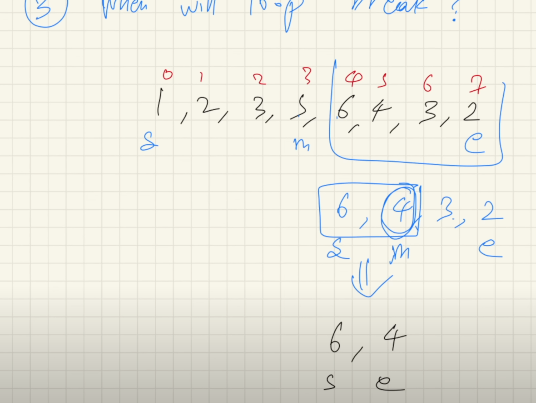 3 when will loop break ?
0 1 2 3 4 5 6 7
1, 2, 3, 5, 6, 4, 3, 2
s m e
6, 4, 3, 2
s m e
6, 4
s e